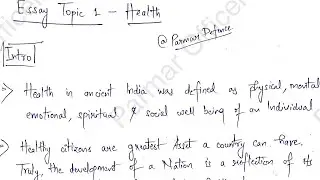 Essay Topic 1 - Health
@Parmar Defence
Intro
Health in ancient India was defined as physical, mental
emotional, spiritual & social well being of an Individual
Healthy citizens are greatest Asset a country can have.
Truly, the development of a Nation is a reflection of its
Parmar Officer